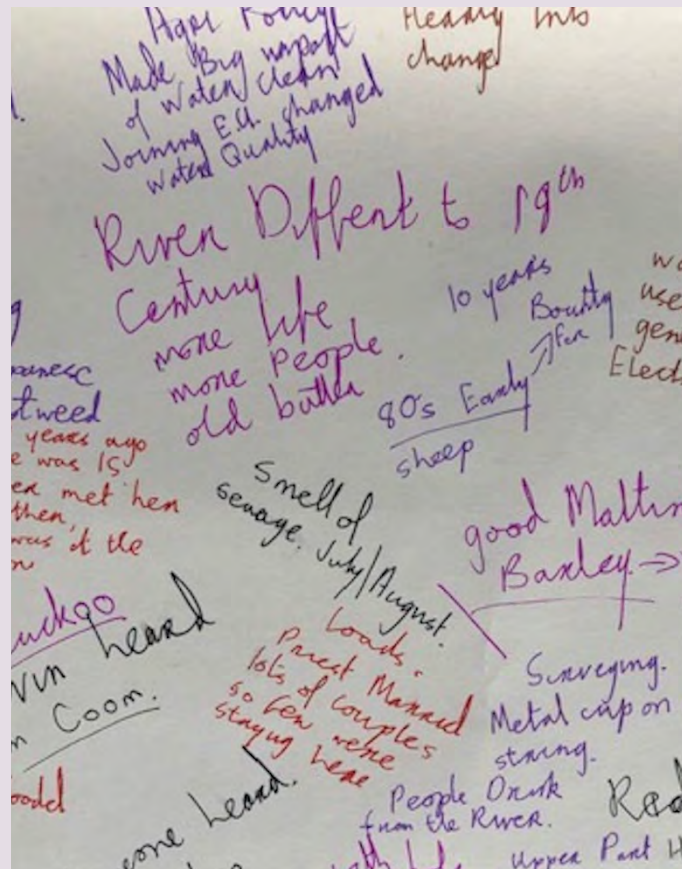 Made Big impact
of Water clean
Joining E.U. changed
Water Quality
change
River Diffent to 19th
Century
more life
more People.
old butter
10 years
Bounty
for
80's Early
sheep
use
tweed
years ago
was 15
met her
then,
was it the
Smell of
sewage. July/August.
good
Barley →
heard
Coom.
Loads.
Priest Married
lots of couples
so few were
staying here
Surveying.
Metal cup on
string.
People Drink
from the River.
heard.
Upper Part